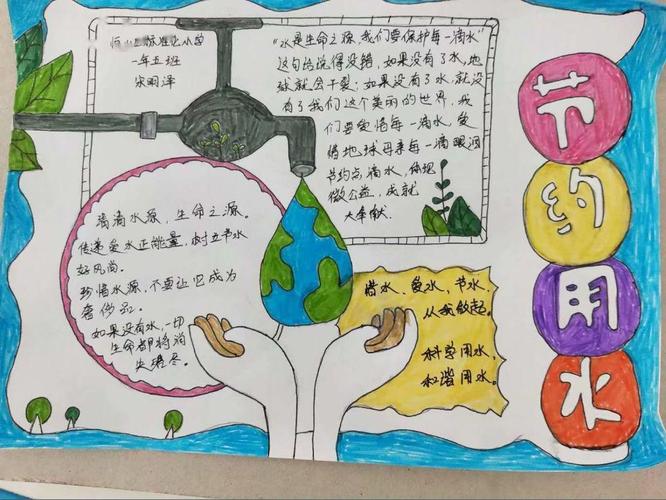 标准化小学
一年五班
宋明泽
“水是生命之源，我们要保护每一滴水”
这句话说得没错，如果没有了水，地
球就会干裂；如果没有了水，就没
有了我们这个美丽的世界。我
们要爱惜每一滴水，爱
惜地球母亲每一滴眼泪
节约点滴水，体现
微公益，成就
大奉献。
滴滴水源，生命之源。
传递爱水正能量，树立节水
好风尚。
珍惜水源，不要让它成为
奢侈品。
如果没有水，一切
生命都将消
失殆尽。
惜水、爱水、节水、
从我做起。
科学用水，
和谐用水。
节约用水